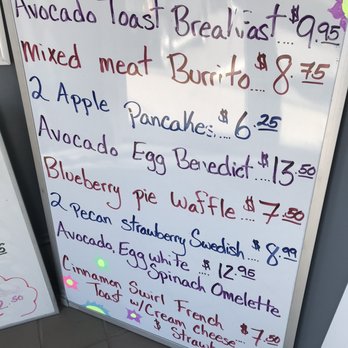 Avocado Toast Breakfast $9.95
Mixed meat Burrito $8.75
2 Apple Pancakes $6.25
Avocado Egg Benedict $13.50
Blueberry pie Waffle $7.50
2 Pecan strawberry Swedish $8.99
Avocado, Egg white $12.95
Spinach Omelette
Cinnamon Swirl French $7.50
Toast w/Cream Cheese
& Straw